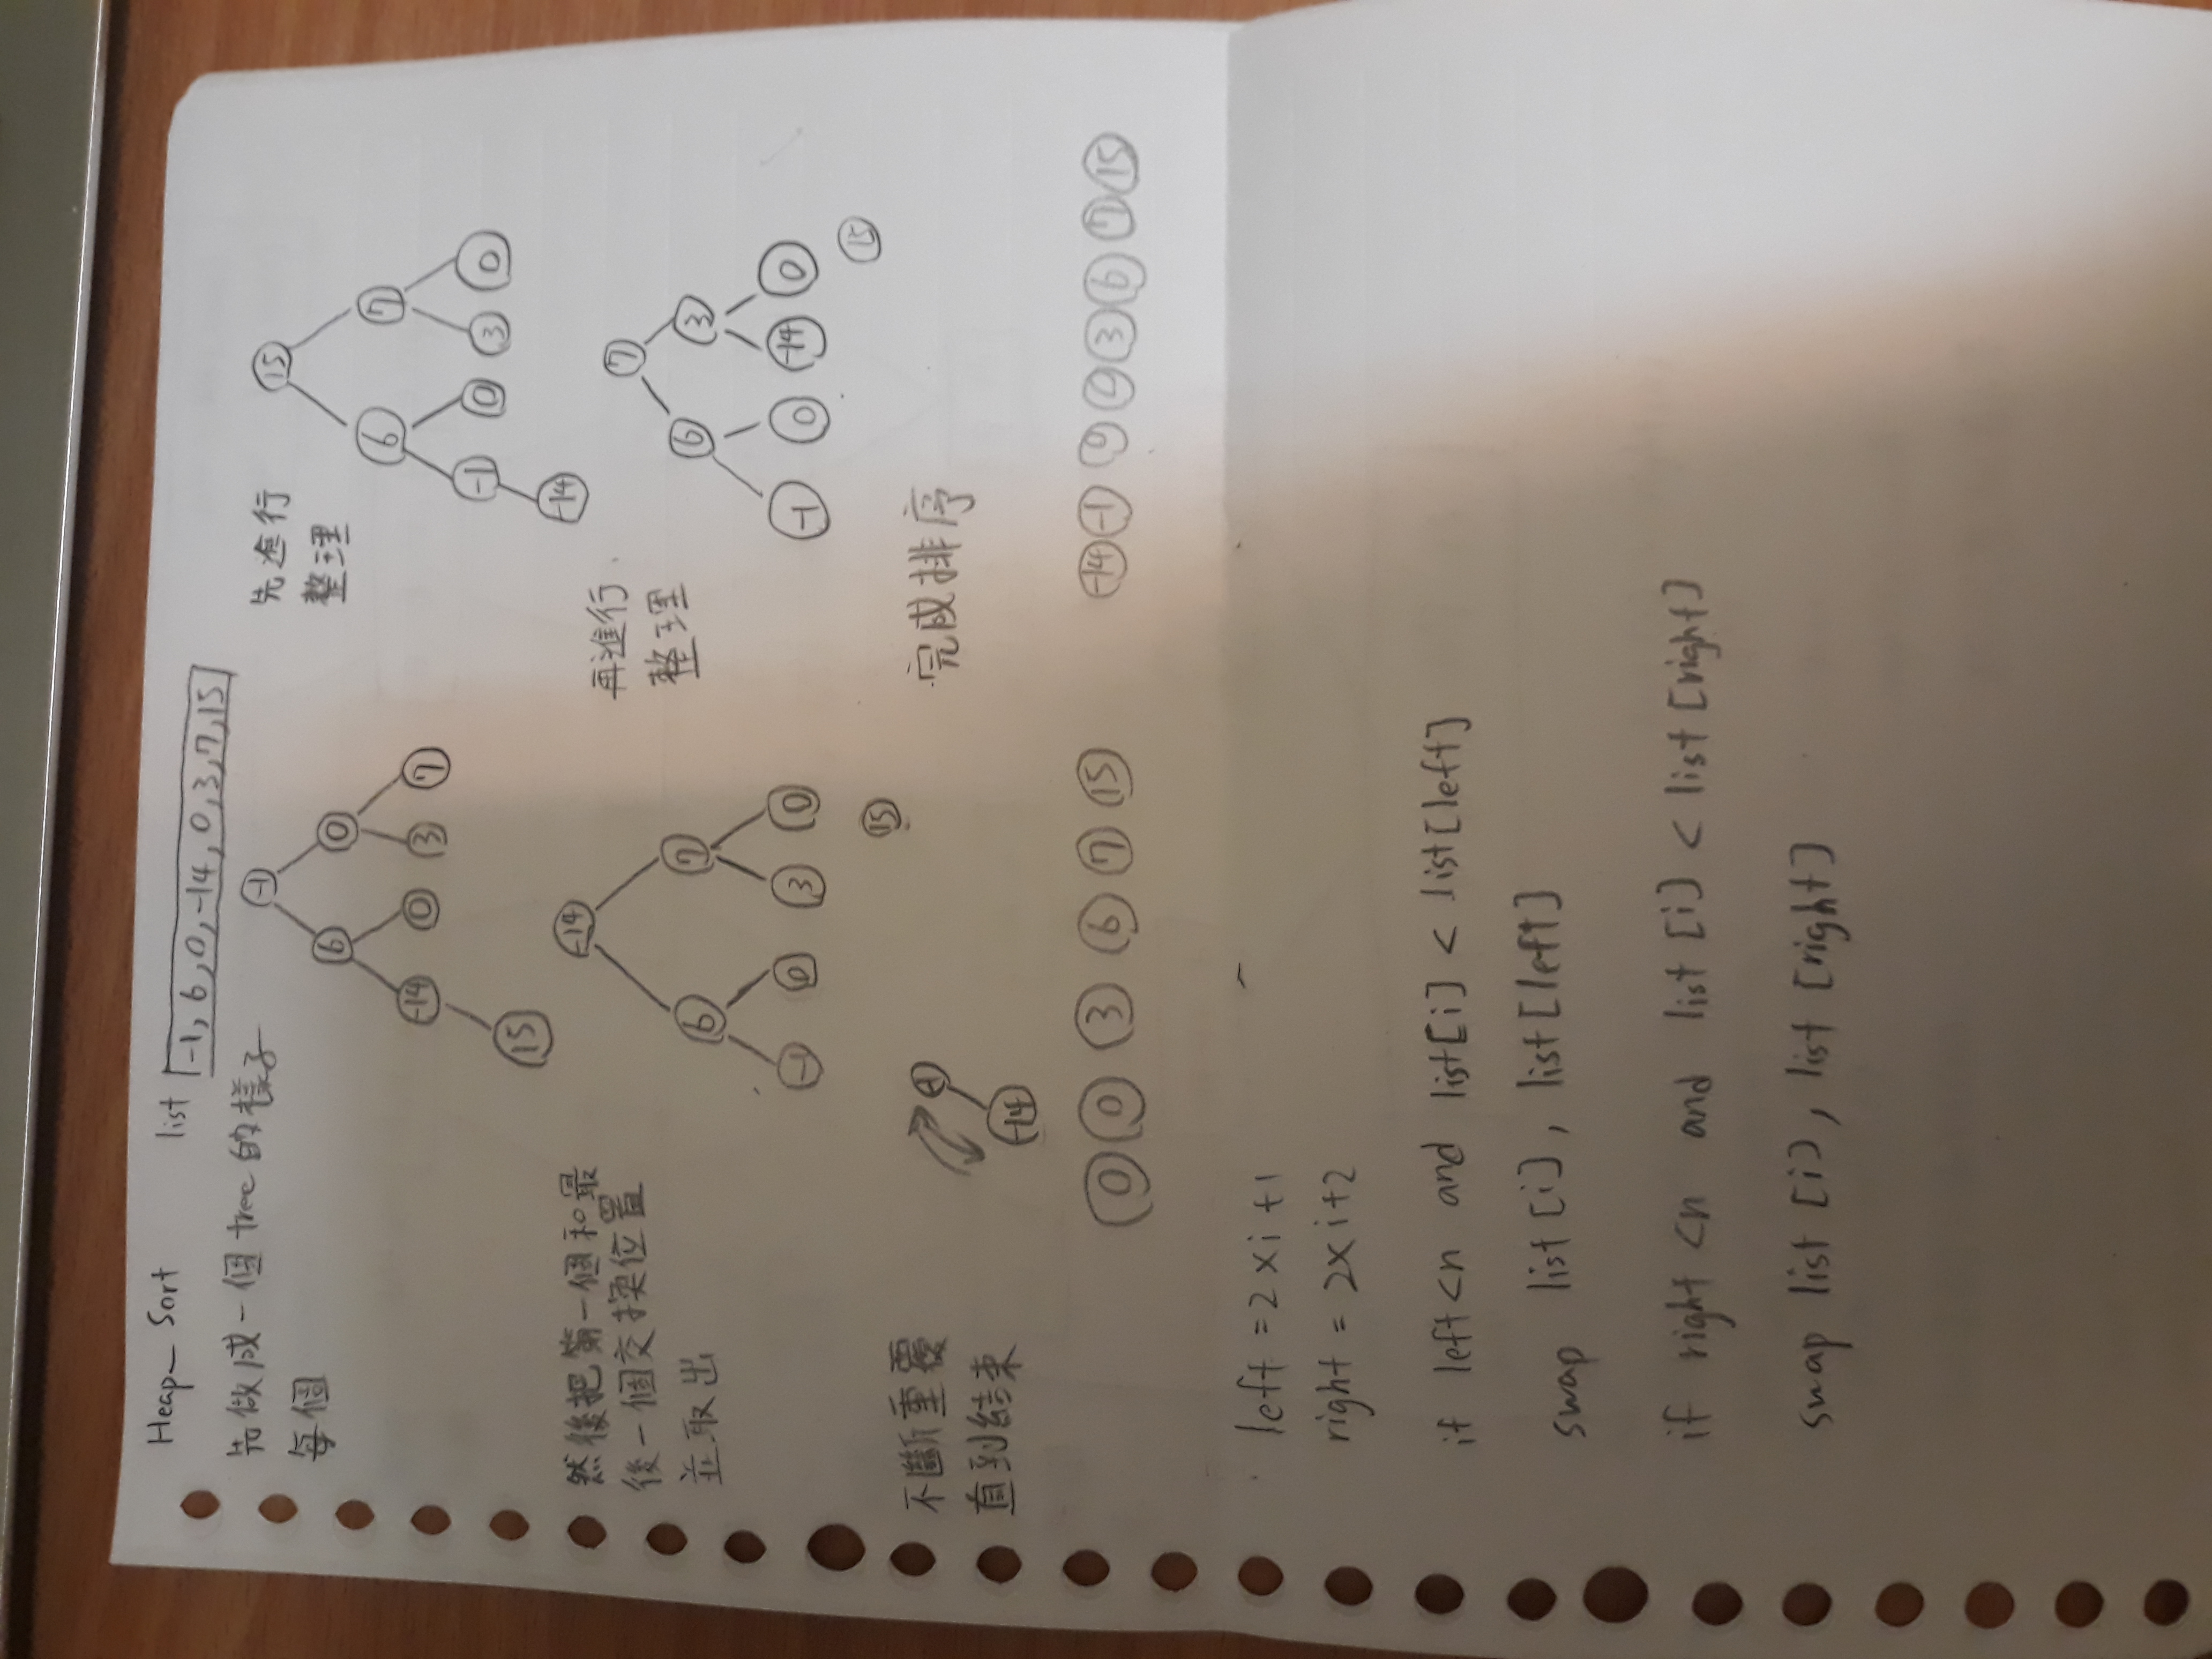 Heap_ Sort
list -1, 6, 0, -14, 0, 3, 7, 15
先做成一個 tree 的樣子
每個
-1
6 0
-14 0 3 7
15
先進行
整理
15
6 7
-1 0 3 0
-14
然後把第一個和最
後一個交換位置
並取出
-14
6 7
-1 0 3 0
15
再進行
整理
7
6 3
-1 0 -14 0
15
不斷重覆
直到結束
-1
-14
0 0 3 6 7 15
完成排序
-14 -1 0 0 3 6 7 15
left = 2 x i + 1
right = 2 x i + 2
if left < n and list[i] < list[left]
swap list[i], list[left]
if right < n and list[i] < list[right]
swap list[i], list[right]